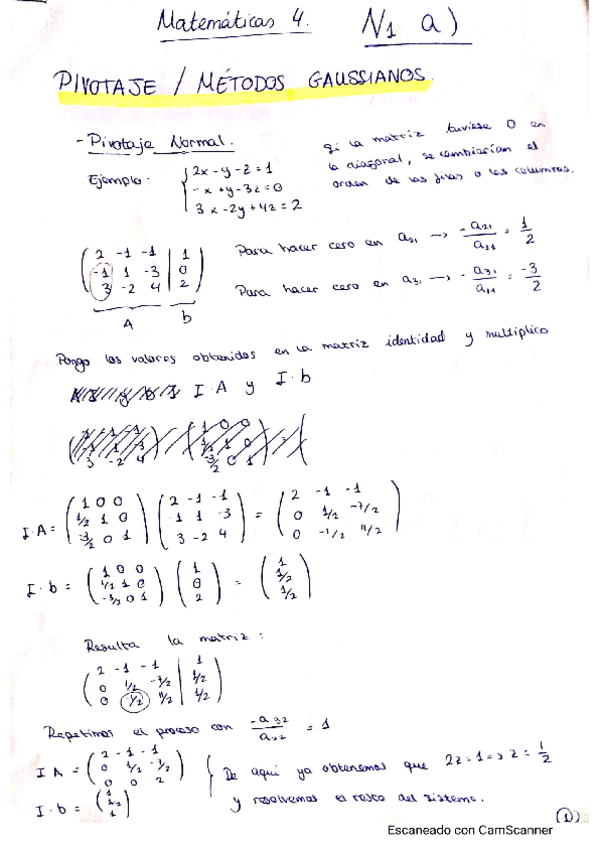 Matemáticas 4. N1 a)
PIVOTAJE / MÉTODOS GAUSSIANOS.
- Pivotaje Normal.
Si la matriz tuviese 0 en
la diagonal, se cambiarían el
orden de las filas o las columnas.
Ejemplo: { 2x - y - z = 1
- x + y - 3z = 0
3x - 2y + 4z = 2
( 2 -1 -1 | 1
-1 1 -3 | 0
3 -2 4 | 2 )
A b
Para hacer cero en a21 → -a21/a11 = 1/2
Para hacer cero en a31 → -a31/a11 = -3/2
Pongo los valores obtenidos en la matriz identidad y multiplico
I·A y I·b
I·A = ( 1 0 0
1/2 1 0
-3/2 0 1 ) ( 2 -1 -1
-1 1 -3
3 -2 4 ) = ( 2 -1 -1
0 1/2 -7/2
0 -1/2 11/2 )
I·b = ( 1 0 0
1/2 1 0
-3/2 0 1 ) ( 1
0
2 ) = ( 1
1/2
1/2 )
Resulta la matriz:
( 2 -1 -1 | 1
0 1/2 -7/2 | 1/2
0 -1/2 11/2 | 1/2 )
Repetimos el proceso con -a32/a22 = 1
I A = ( 2 -1 -1
0 1/2 -7/2
0 0 2 )
I·b = ( 1
1/2
1 )
De aquí ya obtenemos que 2z = 1 => z = 1/2
y resolvemos el resto del sistema.
1
Escaneado con CamScanner